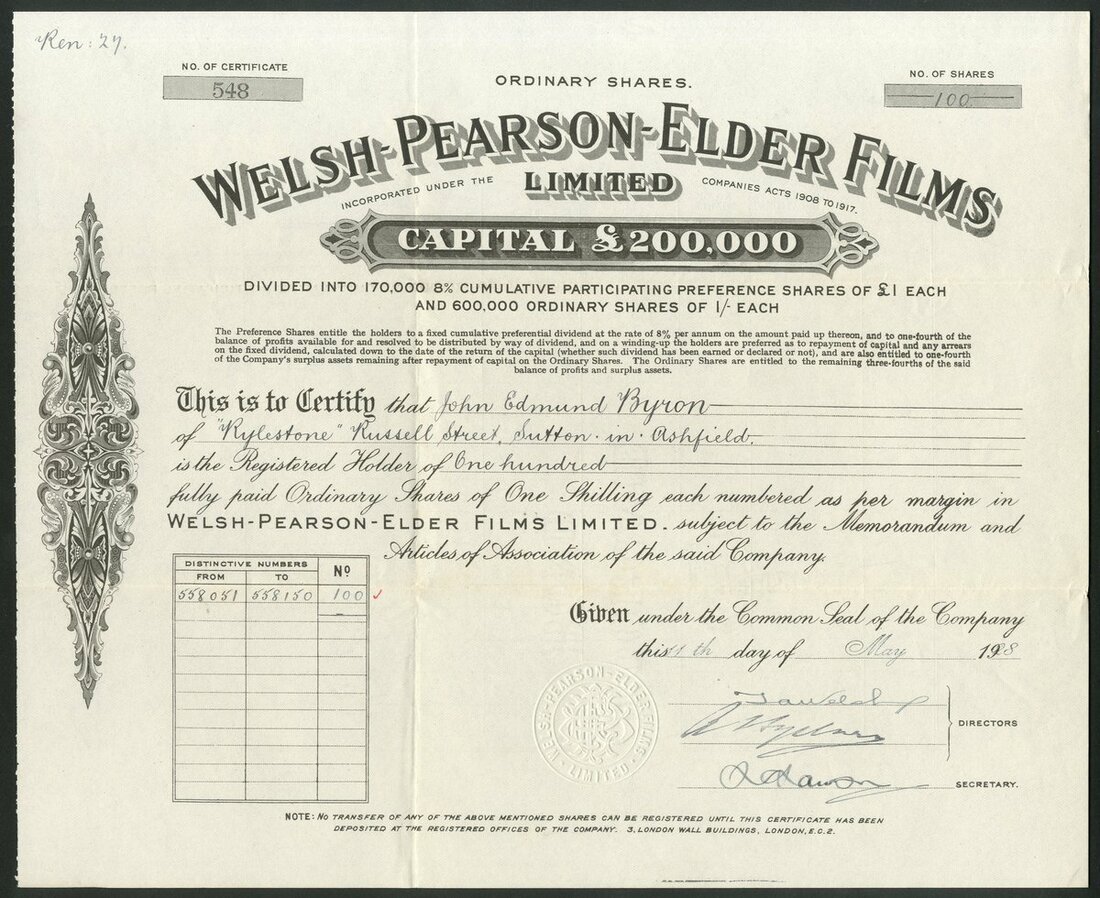 Ren: 27.
NO. OF CERTIFICATE
548
ORDINARY SHARES.
NO. OF SHARES
100
WELSH-PEARSON-ELDER FILMS
LIMITED
INCORPORATED UNDER THE COMPANIES ACTS 1908 TO 1917.
CAPITAL £200,000
DIVIDED INTO 170,000 8% CUMULATIVE PARTICIPATING PREFERENCE SHARES OF £1 EACH
AND 600,000 ORDINARY SHARES OF 1/- EACH
The Preference Shares entitle the holders to a fixed cumulative preferential dividend at the rate of 8% per annum on the amount paid up thereon, and to one-fourth of the
balance of profits available for and resolved to be distributed by way of dividend, and on a winding-up the holders are preferred as to repayment of capital and any arrears
on the fixed dividend, calculated down to the date of the return of the capital (whether such dividend has been earned or declared or not), and are also entitled to one-fourth
of the Company's surplus assets remaining after repayment of capital on the Ordinary Shares. The Ordinary Shares are entitled to the remaining three-fourths of the said
balance of profits and surplus assets.
This is to Certify that John Edmund Byron
of "Rylestone" Russell Street, Sutton-in-Ashfield.
is the Registered Holder of One hundred
fully paid Ordinary Shares of One Shilling each numbered as per margin in
WELSH-PEARSON-ELDER FILMS LIMITED. subject to the Memorandum and
Articles of Association of the said Company.
DISTINCTIVE NUMBERS
FROM TO No
558051 558150 100
Given under the Common Seal of the Company
this th day of May 1928
WELSH-PEARSON-ELDER FILMS
LIMITED
DIRECTORS
SECRETARY.
NOTE: NO TRANSFER OF ANY OF THE ABOVE MENTIONED SHARES CAN BE REGISTERED UNTIL THIS CERTIFICATE HAS BEEN
DEPOSITED AT THE REGISTERED OFFICES OF THE COMPANY. 3, LONDON WALL BUILDINGS, LONDON, E.C.2.